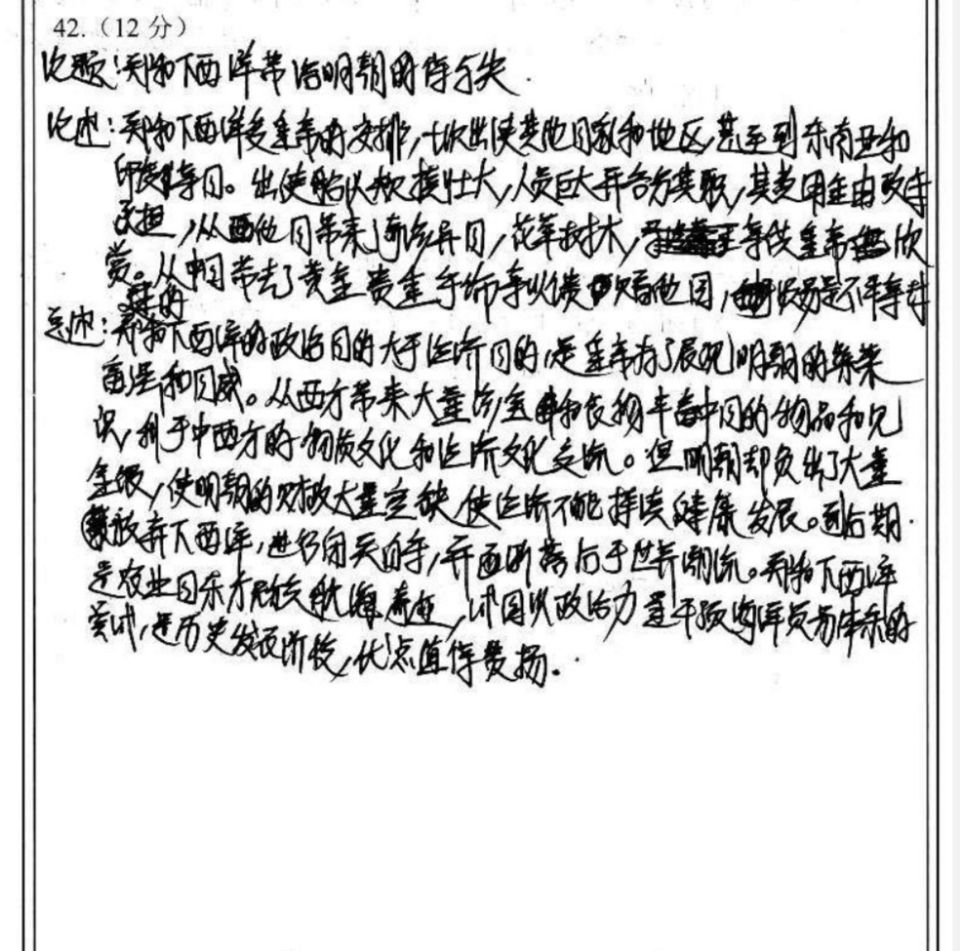 42.（12 分）
论题：郑和下西洋带给明朝的得与失.
论述：郑和下西洋受皇帝的安排，七次出使其他国家和地区,甚至到东南亚和
印度等国。出使船队规模壮大，人员巨大并各有其职，其费用全由政府
承担，从西他国带来了奇珍异国，花草树木，等供皇帝欣
赏。从中国带去了黄金贵重手饰等以馈他国，贸易是不平等
总述：郑和下西洋的政治目的大于经济目的,是皇帝为了展现明朝的繁荣
富强和国威。从西方带来大量珍宝和食物丰富中国的物品和见
识，利于中西方的物质文化和经济文化交流。但明朝却负出了大量
金银，使明朝的财政大量空缺,使经济不能持续健康发展。到后期
放弃下西洋，进行闭关自守，并逐渐落后于世界潮流。郑和下西洋
是农业国东方航海，试图以政治力量干预海洋贸易体系的
尝试，是历史发展阶段，优点值得赞扬.